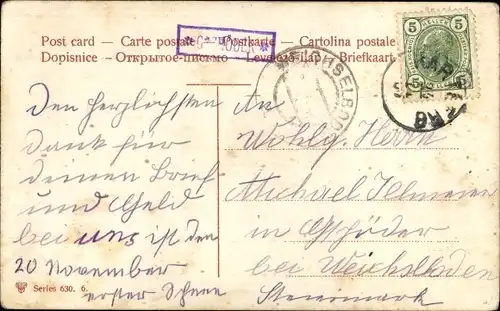 Post card — Carte postale — Postkarte — Cartolina postale
Dopisnice — Открытое письмо — Levelező-lap — Briefkaart
5 HELLER 5
WEICHSELBODEN
Den herzlichsten
Dank für
deinen Brief
und Geld
bei uns ist den
20 November
erster Schnee
An
Wohlg. Herrn
Michael
in Gschöder
bei Weichselboden
Steiermark
Series 630. 6.